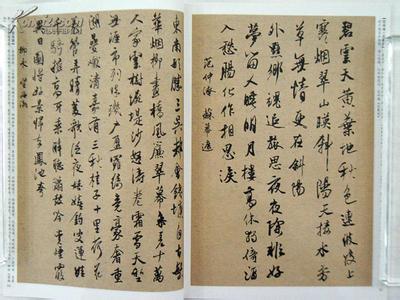 碧雲天黄葉地秋色連波波上
寒煙翠山映斜陽天接水芳
草無情更在斜陽
外黯鄉魂追旅思夜夜除非好
夢留人睡明月樓高休獨倚酒
入愁腸化作相思淚
范仲淹 蘇幕遮
東南形勝三吳都會錢塘自古繁
華煙柳畫橋風簾翠幕參差十萬
人家雲樹繞堤沙怒濤卷霜雪天塹
無涯市列珠璣户盈羅綺競豪奢重
湖疊巘清嘉有三秋桂子十里荷花
羌管弄晴菱歌泛夜嬉嬉釣叟蓮娃
千騎擁高牙乘醉聽簫鼓吟賞煙霞
異日圖將好景歸去鳳池夸
柳永 望海潮